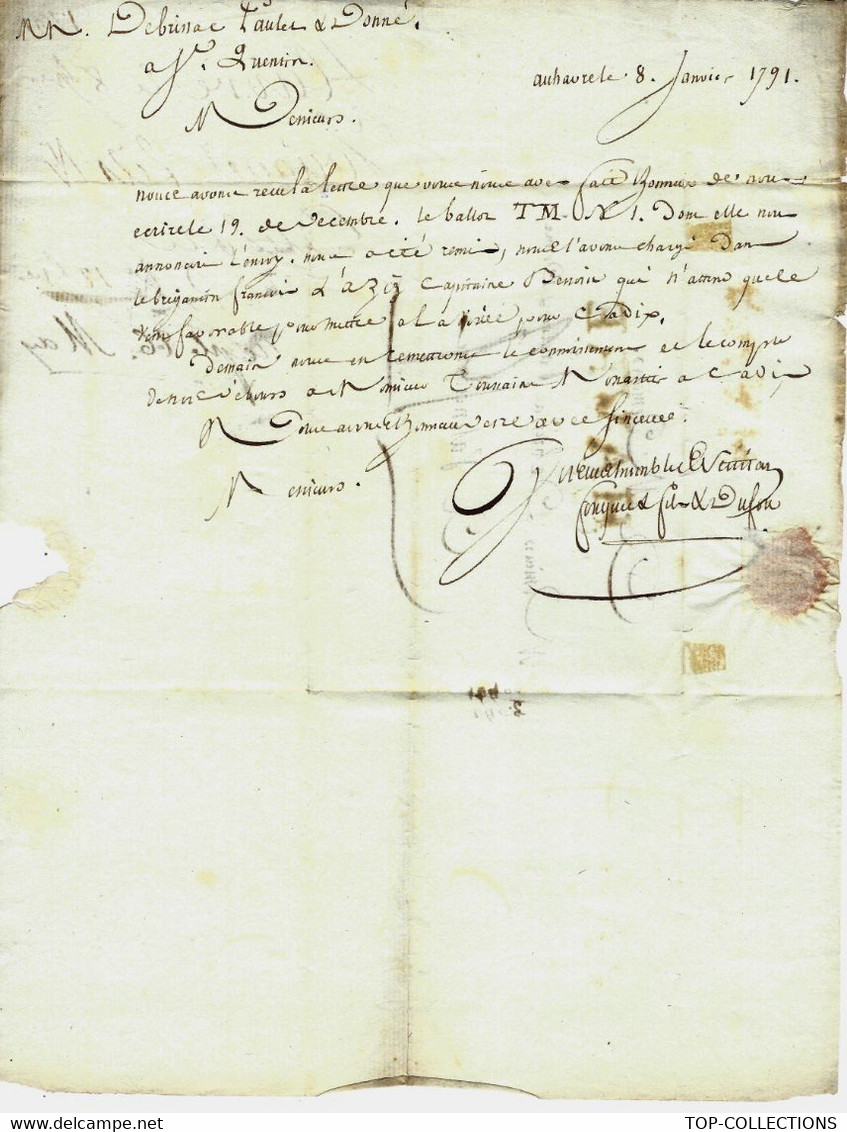 MM. Debrissac Paulet & Donné.
a St. Quentin.
au havre le 8. Janvier 1791.
Messieurs.
nous avons recu la lettre que vous nous avez fait lhonneur de nous
ecrire le 19. de Decembre. le ballot TM N 1. Dont elle nous
annoncoit l'envoy. nous a eté remis, nous l'avons chargé Dans
le brigantin francois Capitaine Benoist qui n'attend que le
Vent favorable pour mettre a la voile pour Cadix.
Demain nous en remettrons le connoissement et le compte
de nos Debours a Messieurs a Cadix
Nous avons Lhonneur d'etre avec sincerité.
Messieurs.
Vos tres humbles Serviteurs
fouquet & fils & Dufou
TOP-COLLECTIONS